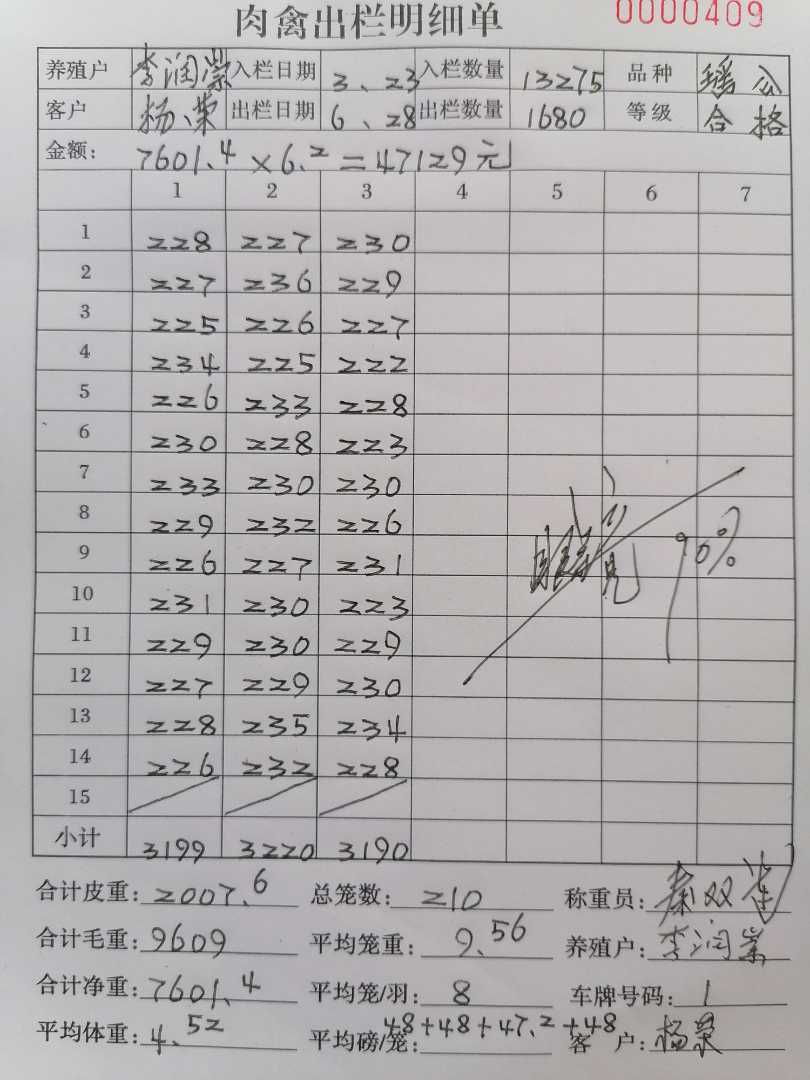 肉禽出栏明细单 0000409
养殖户 李润崇 入栏日期 3、23 入栏数量 13275 品种 瑶公
客户 杨荣 出栏日期 6、28 出栏数量 1680 等级 合格
金额: 7601.4×6.2=47129元
1 2 3 4 5 6 7
1 228 227 230
2 227 236 229
3 225 226 227
4 234 225 222
5 226 233 228
6 230 228 223
7 233 230 230
8 229 232 226
9 226 227 231
10 231 230 223
11 229 230 229
12 227 229 230
13 228 235 234
14 226 232 228
90%
15
小计 3199 3220 3190
合计皮重: 2007.6 总笼数: 210 称重员: 秦双
合计毛重: 9609 平均笼重: 9.56 养殖户: 李润崇
合计净重: 7601.4 平均笼/羽: 8 车牌号码: 1
平均体重: 4.52 平均磅/笼: 48+48+47.2+48 客户: 杨荣